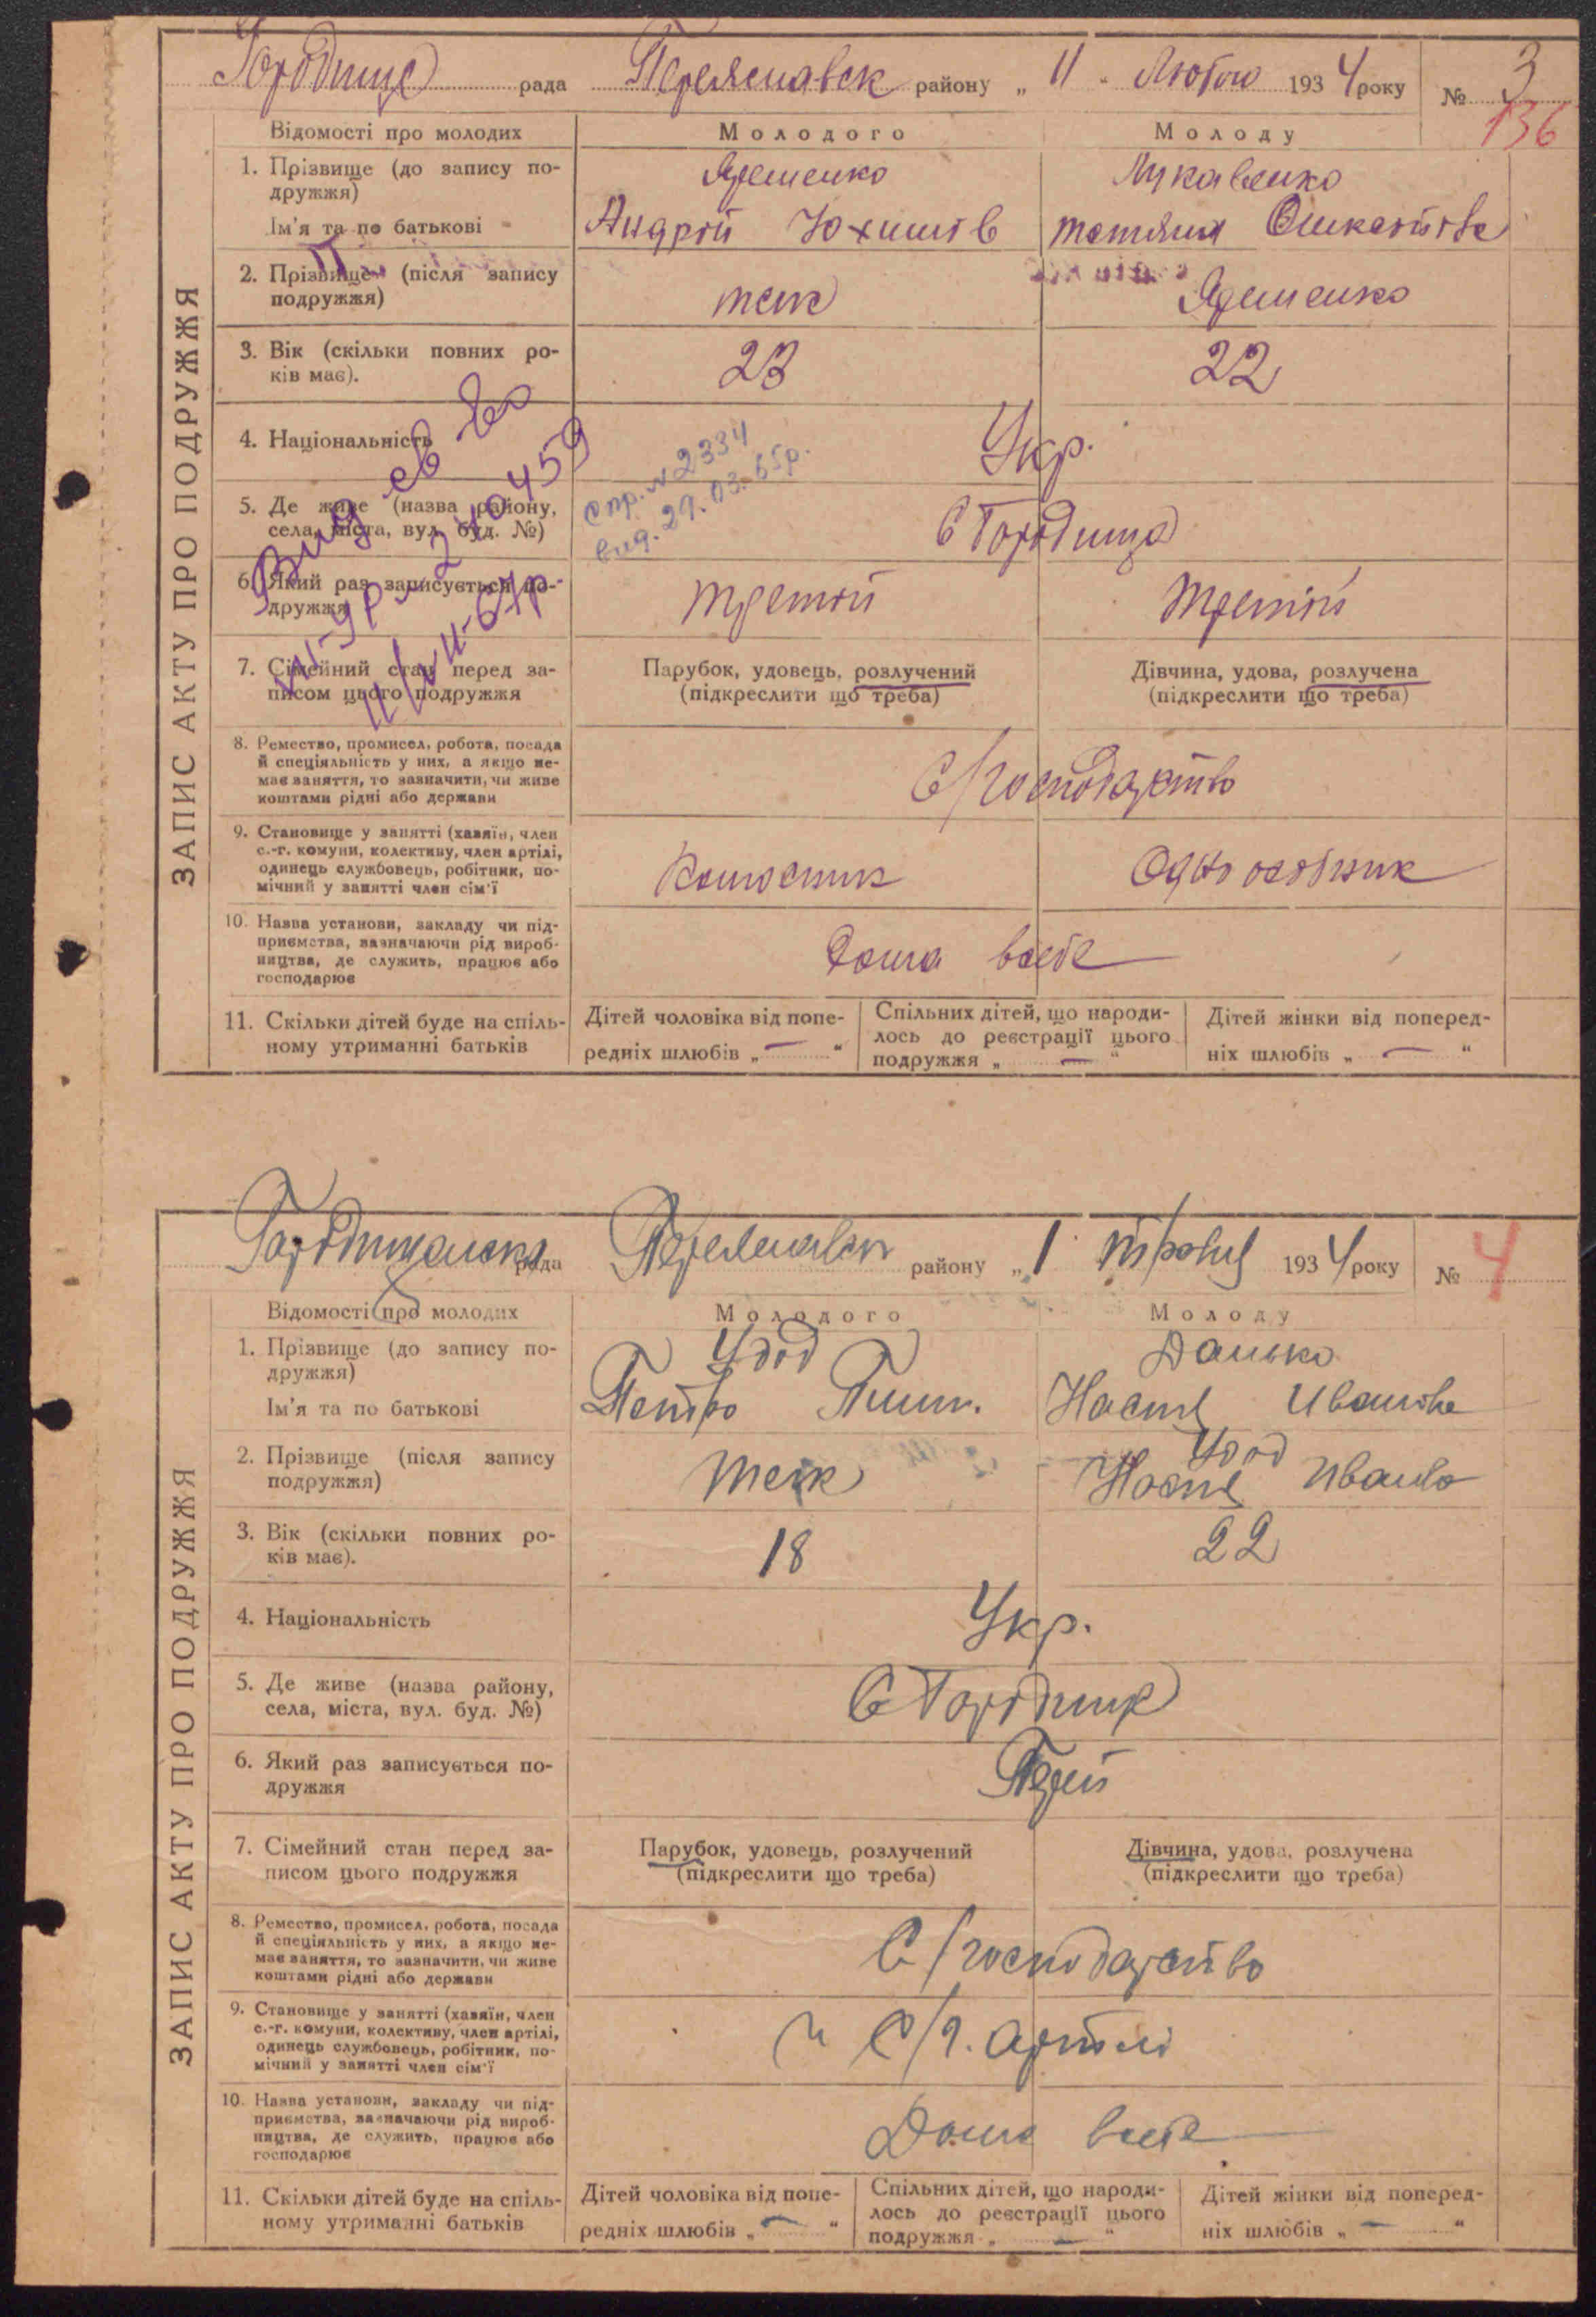 Городище рада Переяславськ района „ 11 " Лютого 1934 року № 3
136
ЗАПИС АКТУ ПРО ПОДРУЖЖЯ
Відомості про молодих Молодого Молоду
1. Прізвище (до запису по-
дружжя)
Ярешенко
Ім'я та по батькові Андрій Юхимів
2. Прізвище (після запису
подружжя)
теж Ярешенко
3. Вік (скільки повних ро-
ків має).
23 22
4. Національність Укр.
Спр. № 2334
вид. 29.03.65р.
5. Де живе (назва району,
села, міста, вул. буд. №)
С Городище
6. Який раз записується по-
дружжя
третій третій
7. Сімейний стан перед за-
писом цього подружжя
Парубок, удовець, розлучений
(підкреслити що треба)
Дівчина, удова, розлучена
(підкреслити що треба)
8. Ремество, промисел, робота, посада
й спеціяльність у них, а якщо не-
має заняття, то зазначити, чи живе
коштами рідні або держави
С/господарство
9. Становище у занятті (хазяїн, член
с.-г. комуни, колективу, член артілі,
одинець службовець, робітник, по-
мічний у занятті член сім'ї
Одноосібник
10. Назва установи, закладу чи під-
приємства, зазначаючи рід вироб-
ництва, де служить, працює або
господарює
Дома в себе
11. Скільки дітей буде на спіль-
ному утриманні батьків
Дітей чоловіка від попе-
редніх шлюбів „ — "
Спільних дітей, що народи-
лось до реєстрації цього
подружжя „ — "
Дітей жінки від поперед-
ніх шлюбів „ — "
рада Переяславськ району „ 1 " травня 1934 року № 4
ЗАПИС АКТУ ПРО ПОДРУЖЖЯ
Відомості про молодих Молодого Молоду
1. Прізвище (до запису по-
дружжя)
Удод Данько
Ім'я та по батькові Петро Пили. Настя Иванівна
2. Прізвище (після запису
подружжя)
теж Удод
Настя
3. Вік (скільки повних ро-
ків має).
18 22
4. Національність Укр.
5. Де живе (назва району,
села, міста, вул. буд. №)
С Городище
6. Який раз записується по-
дружжя
7. Сімейний стан перед за-
писом цього подружжя
Парубок, удовець, розлучений
(підкреслити що треба)
Дівчина, удова, розлучена
(підкреслити що треба)
8. Ремество, промисел, робота, посада
й спеціяльність у них, а якщо не-
має заняття, то зазначити, чи живе
коштами рідні або держави
С/господарство
9. Становище у занятті (хазяїн, член
с.-г. комуни, колективу, член артілі,
одинець службовець, робітник, по-
мічний у занятті член сім'ї
ч С/г. артілі
10. Назва установи, закладу чи під-
приємства, зазначаючи рід вироб-
ництва, де служить, працює або
господарює
Дома в себе
11. Скільки дітей буде на спіль-
ному утриманні батьків
Дітей чоловіка від попе-
редніх шлюбів „ — "
Спільних дітей, що народи-
лось до реєстрації цього
подружжя „ — "
Дітей жінки від поперед-
ніх шлюбів „ — "